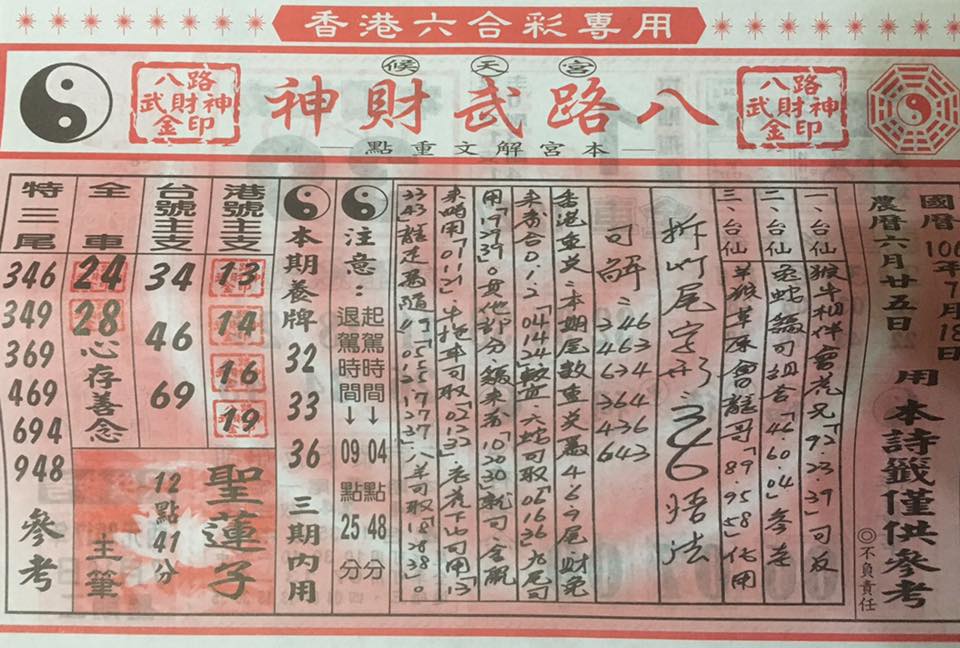 香港六合彩專用
天候宮
八路武財神
八路武財神金印
八路武財神金印
本宮解文重點
國曆106年7月18日
農曆六月廿五日
用本詩籤僅供參考
◎不負責任
一、台仙 猴牛相伴會虎兄「92.23.39」可友
二、台仙 兔蛇 可 合「46.60.04」參考
三、台仙 羊猴草原會龍哥「89.95.58」代用
拆八尾字形 346 悟法
可解:346
463
634
364
436
643
香港重點:本期尾數重點為4.6.9尾財兔
來 合0.1.2「04.14.24」 六蛇可取「06.16.36」九尾可
用「19.29.39」 其他部分 來 「10.20.30」就可 龍
來時用「01.11.21」牛 可取「02.12.32」老虎下山可用「13
33.43」龍 隨 「05.15.25」「17.27.37」八羊可取「18.28.38」。
注意:
起駕時間→04點48分
退駕時間→09點25分
本期養牌 32 33 36 三期內用
港號主支
13
14
16
19
台號主支
34
46
69
全車
24
28
心存善念
特三尾
346
349
369
469
694
948
參考
聖蓮子
12點41分
主筆